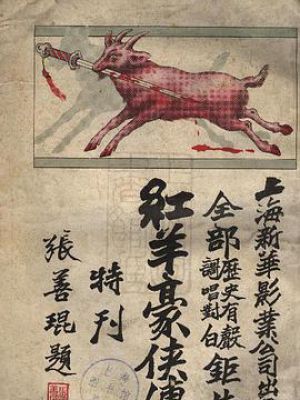 上海新華影業公司出
全部歷史有聲
歌唱對白
鉅片
紅羊豪俠傳
特刊
張善琨題